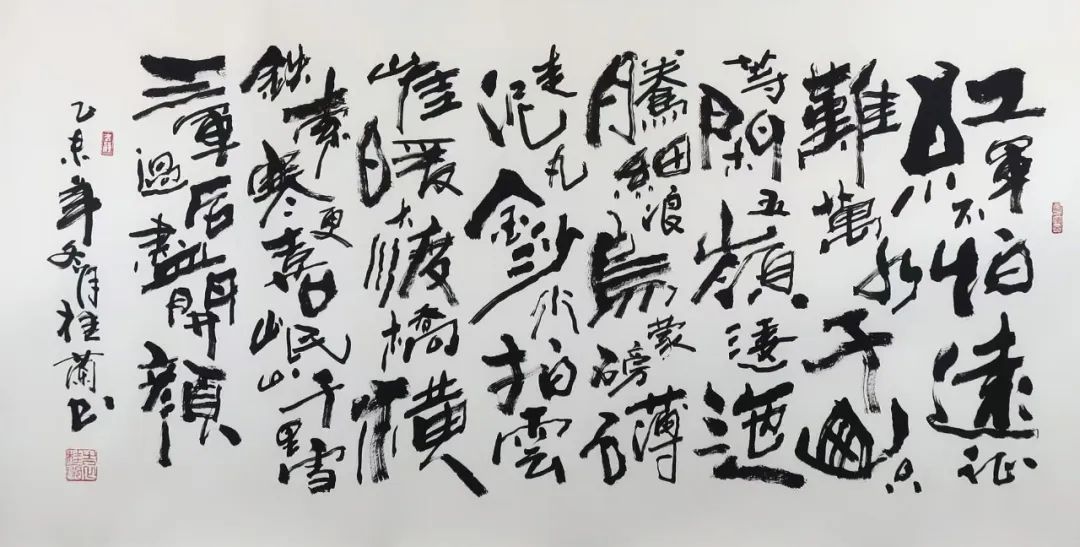 紅軍不怕遠征
難萬水千山只
等閒五嶺逶迤
騰細浪烏蒙磅礴
走泥丸金沙水拍雲
崖暖大渡橋橫
鉄索寒更喜岷山千里雪
三軍過后盡開顔
乙未年冬月桂蘭书